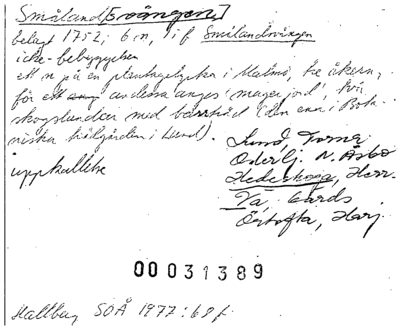 Småland[svången]
belagt 1752; 6 n, i f Smålandsvången
icke-bebyggelsen
ett n på en plantagelycka i Malmö, tre åkern,
för ett av dessa anges 'mager jord', två
skogslundar med barrträd (den ena i Bota-
niska trädgården i Lund).
Lund, Torna
Öderlj. N. Åsbo
uppkallelse
Hedeskoga, Herr.
Vä, Gärds
Örtofta, Harj.
00031389
Hallberg SOÅ 1977: 68 f